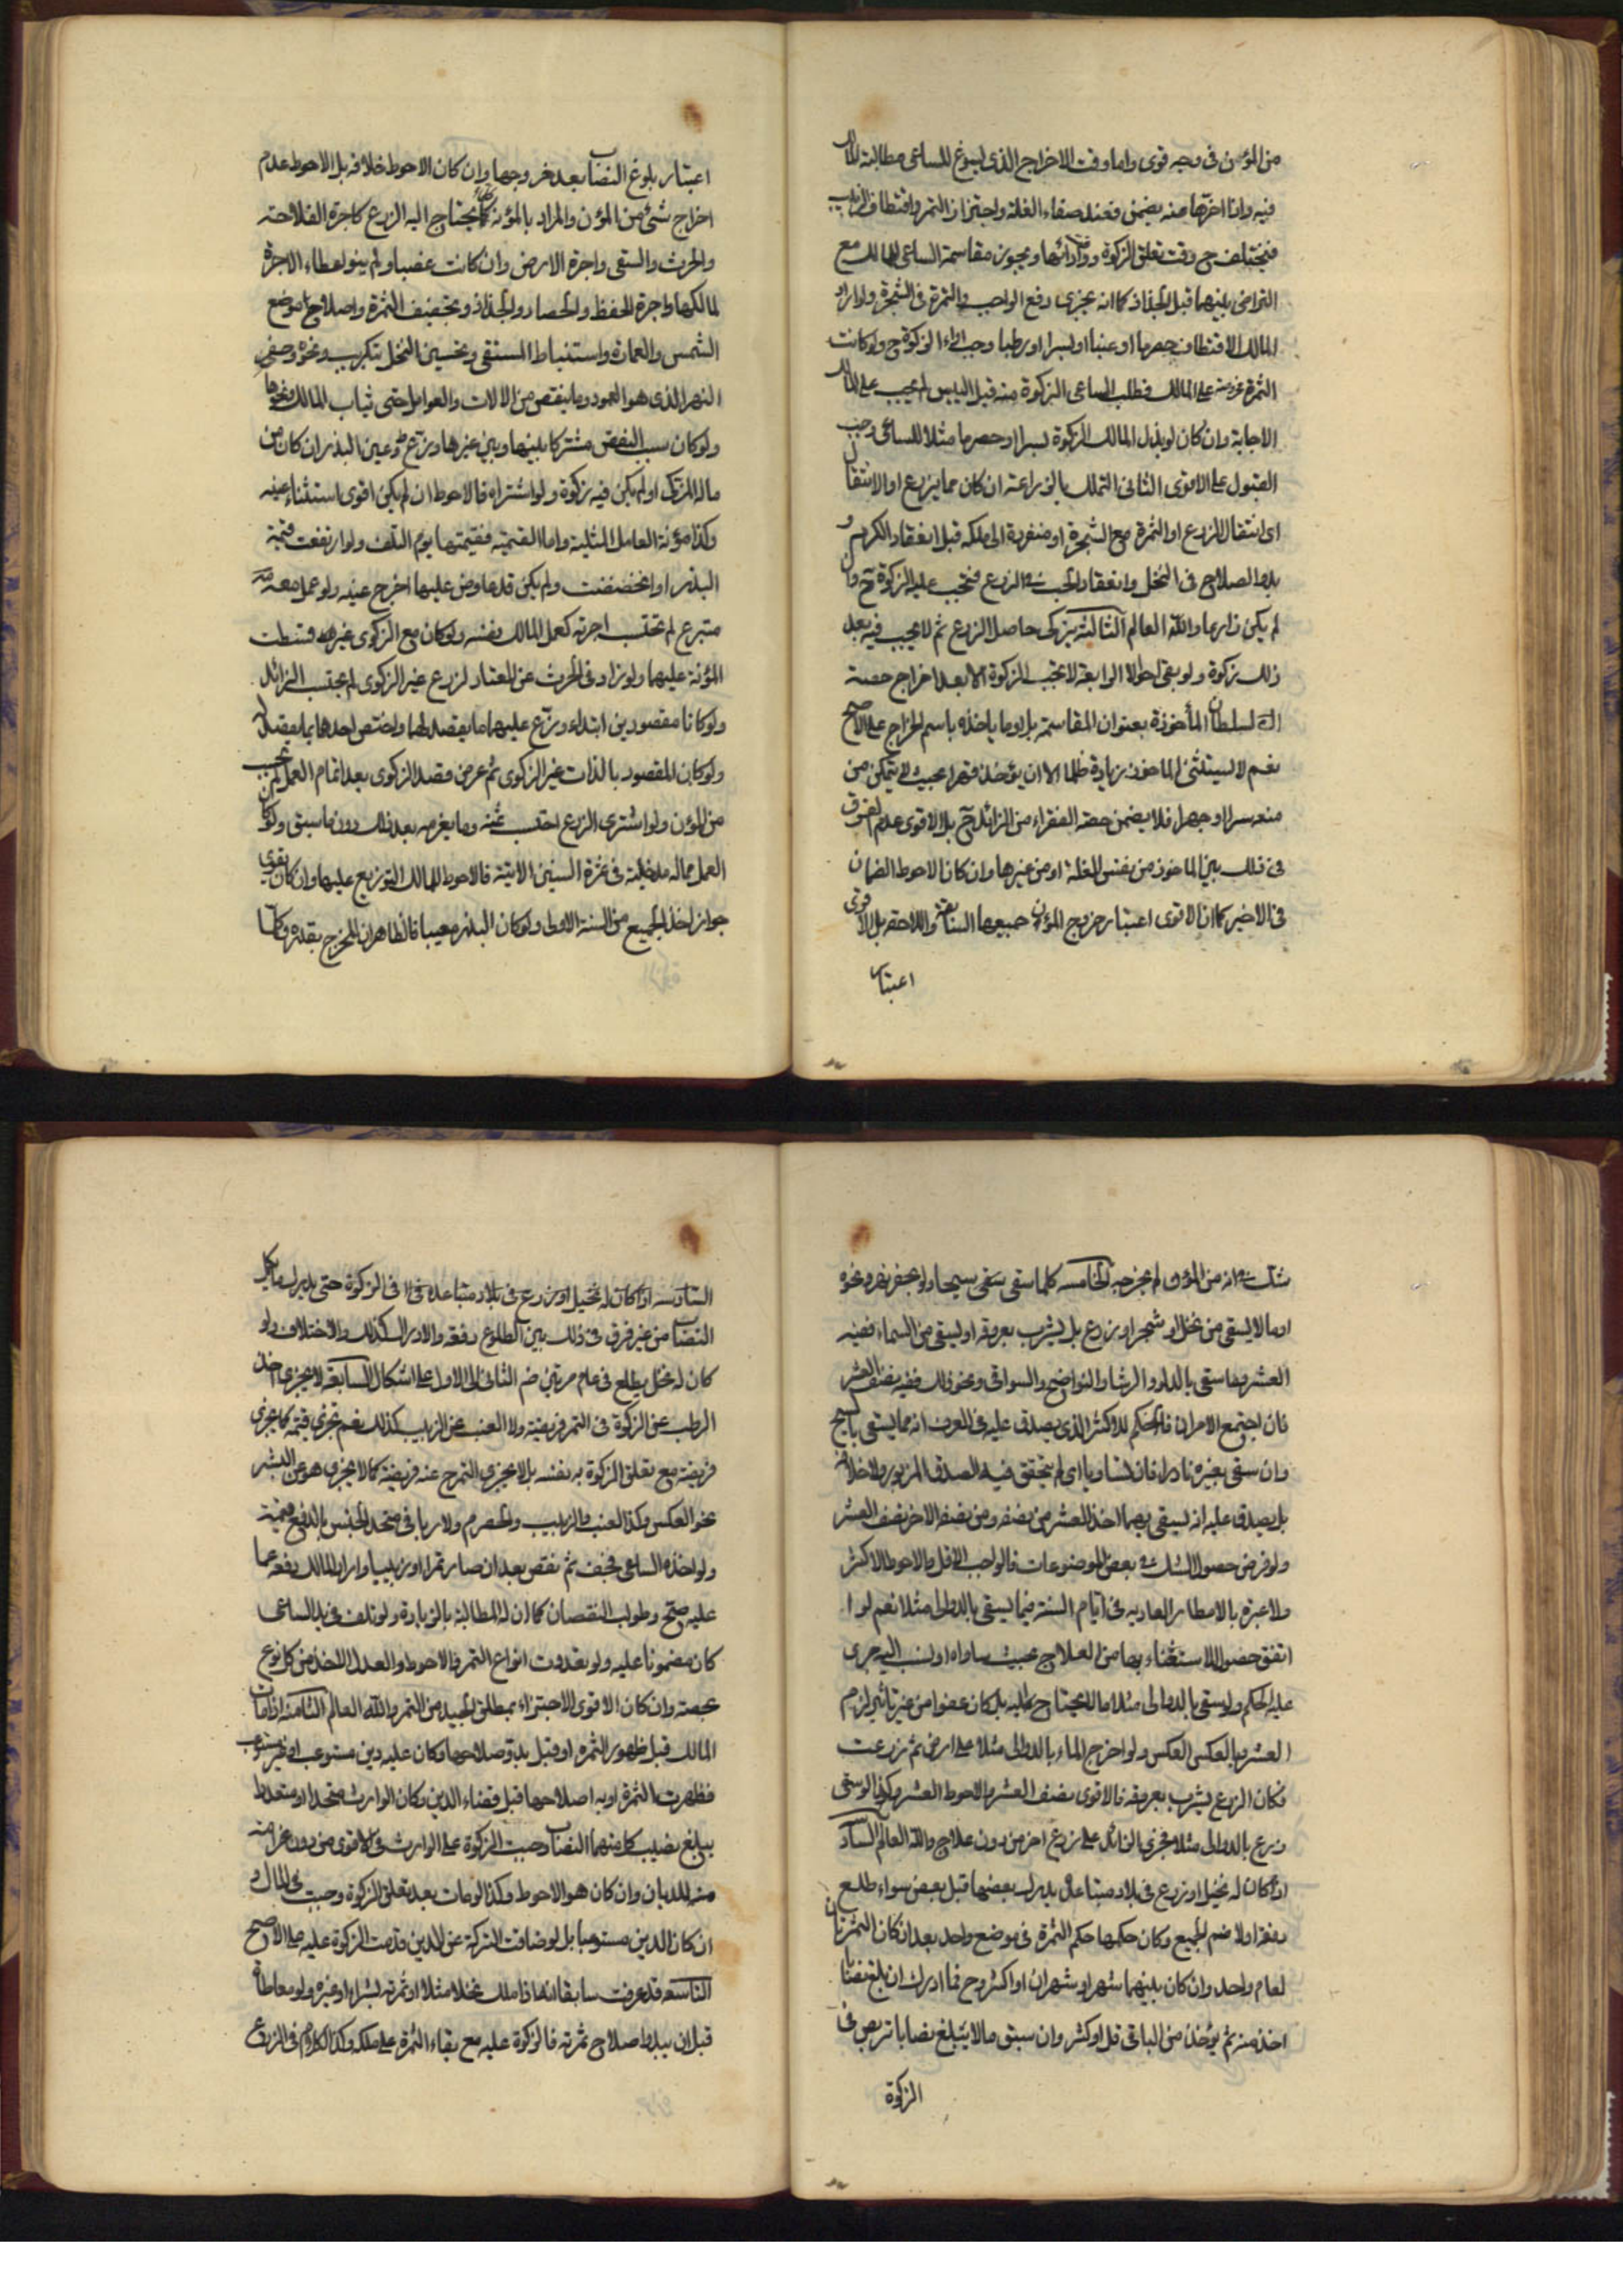 من المؤمن في وجه قوى واما وقت الاخراج الذي يسوغ للساعى مطالبة المالك
فيه واذا اخرها عنه يضمن فعند صفاء الغلة واجتزاز التمر واقتطاف الزبيب
فيختلف ح وقت تعلق الزكوة ووقت ادائها ويجوز مقاسمة الساعى للمالك مع
التراضى بينهما قبل الجذاذ كما انه يجزى دفع الواجب والثمرة في الشجرة ولو اراد
المالك الاقتطاف حصرما او عنبا او بسرا او رطبا وجب اداء الزكوة ح ولو كانت
الثمرة مخروصة على المالك فطلب الساعى الزكوة منه قبل اليبس لم يجب على المالك
الاجابة وان كان لو بذل المالك الزكوة بسرا او حصرما مثلا للساعى وجب
القبول على الاقوى الثانى التملك بالزراعة ان كان مما يزرع او الانتقال
اى انتقال الزرع او الثمرة مع الشجرة او منفردة الى ملكه قبل انعقاد الكرم و
بدو الصلاح في النخل وانعقاد الحب في الزرع فتجب عليه الزكوة ح وان
لم يكن زارعا والله العالم الثالثة يزكى حاصل الزرع ثم لا يجب فيه بعد
ذلك زكوة ولو بقى احوالا الرابعة لا تجب الزكوة الا بعد اخراج حصة
السلطان المأخوذة بعنوان المقاسمة بل وما ياخذه باسم الخراج على الاصح
نعم لا يستثنى الماخوذ زيادة ظلما الا ان يؤخذ قهرا بحيث لا يتمكن من
منعه سرا او جهرا فلا يضمن حصة الفقراء من الزائد ح بل الاقوى عدم الفرق
في ذلك بين الماخوذ من نفس الغلة او من غيرها وان كان الاحوط الضمان
في الاخير كما ان الاقوى اعتبار خروج المؤن جميعها السابقة واللاحقة بل الاقوى
اعتبار
اعتبار بلوغ النصاب بعد خروجها وان كان الاحوط خلافه بل الاحوط عدم
اخراج شئ من المؤن والمراد بالمؤنة كلما يحتاج اليه الزرع كاجرة الفلاحة
والحرث والسقى واجرة الارض وان كانت غصبا ولم ينو اعطاء الاجرة
لمالكها واجرة الحفظ والحصاد والجذاذ وتجفيف الثمرة واصلاح موضع
الشمس والعمارة واستنباط المستقى وتحسين النخل بتكريب ونحوه وحفر
النهر الذى هو العمود وما ينقص من الالات والعوامل حتى ثياب المالك ونحوها
ولو كان سبب النقص مشتركا بينها وبين غيرها وزع وعين البذر ان كان من
ماله المزكى او لم يكن فيه زكوة ولو اشتراه فالاحوط ان لم يكن اقوى استثناء عينه
وكذا مؤنة العامل المثلية واما القيمية فقيمتها يوم التلف ولو ارتفعت قيمة
البذر او انخفضت ولم يكن قد عاوض عليها اخرج عينه ولو عمل معه
متبرع لم تحتسب اجرته كعمل المالك بنفسه ولو كان مع الزكوى غيره قسطت
المؤنة عليهما ولو زاد في الحرث عن المعتاد لزرع غير الزكوى لم يحتسب الزائد
ولو كانا مقصودين ابتداء وزع عليهما ما يقصد لهما واختص احدهما بما يقصد له
ولو كان المقصود بالذات غير الزكوى ثم عرض قصد الزكوى بعد اتمام العمل لم يحتسب
من المؤن ولو اشترى الزرع احتسب ثمنه وما يغرمه بعد ذلك دون ما سبق ولو كان
العمل مما له مدخلية في ثمرة السنين الاتية فالاحوط للمالك التوزيع عليها وان كان يقوى
جواز اخذ الجميع من السنة الاولى ولو كان البذر معيبا فالظاهر ان المخرج بقدره وكلما
شك في انه من المؤن لم يخرجه الخامسة كلما سقى سقى سيحا ولو بحفر نهر ونحوه
او ما لا يسقى من نخل او شجر او زرع بل يشرب بعروقه او يسقى من السماء ففيه
العشر وما سقى بالدلو والرشا والنواضح والسواقى ونحو ذلك ففيه نصف العشر
فان اجتمع الامران فالحكم للاكثر الذى يصدق عليه في العرف انه مما يسقى بالسيح
وان سقى بغيره نادرا فان تساويا اى لم يتحقق فيه الصدق المزبور ولا خلافه
بل يصدق عليه انه يسقى بهما اخذ العشر من نصفه ومن نصفه الاخر نصف العشر
ولو فرض حصول الشك في بعض الموضوعات فالواجب الاقل والاحوط الاكثر
ولا عبرة بالامطار العادية في ايام السنة فيما يسقى بالدوالى مثلا نعم لو ا
اتفق حصول الاستغناء بها من العلاج بحيث ساواه او نسب اليه جرى
عليه الحكم ولو سقى بالدوالى مثلا ما لا يحتاج اليه بل كان عفوا من غير تاثير لزم
العشر وبالعكس العكس ولو اخرج الماء بالدوالى مثلا على ارض ثم زرعت
فكان الزرع يشرب بعروقه فالاقوى نصف العشر والاحوط العشر وكذا لو سقى
زرع بالدوالى مثلا فجرى الزائد على زرع اخر من دون علاج والله العالم السادسة
اذا كان له نخيل او زرع في بلاد متباعدة يدرك بعضها قبل بعض سواء طلع
دفعة اولا ضم الجميع وكان حكمها حكم الثمرة في موضع واحد بعد ان كان الثمرتان
لعام واحد وان كان بينهما شهر او شهران او اكثر وح فما ادرك ان بلغ نصابا
اخذ منه ثم يؤخذ من الباقى قل او كثر وان سبق مالا يبلغ نصابا تربص في
الزكوة
السادسة اذا كان له نخيل او زرع في بلاد متباعدة في الزكوة حتى يدرك ما يكمل
النصاب من غير فرق في ذلك بين الطلوع دفعة والادراك كذلك والاختلاف ولو
كان له نخل يطلع في عام مرتين ضم الثانى الى الاول على اشكال السابعة لا يجزى اخذ
الرطب عن الزكوة في التمر فريضة ولا العنب عن الزبيب كذلك نعم تجزى قيمة كما يجزى
فريضة مع تعلق الزكوة به نفسه بل لا يجزى التمر ح عنه فريضة كما لا يجزى هو عن البسر
نحو العكس وكذا العنب والزبيب والحصرم ولا ربا في متحد الجنس بالدفع قيمة
ولو اخذه الساعى فجف ثم نقص بعد ان صار تمرا او زبيبا واراد المالك دفعه عما
عليه صح وطولب النقصان كما ان له المطالبة بالزيادة ولو تلف في يد الساعى
كان مضمونا عليه ولو تعددت انواع التمر فالاحوط والعدل الاخذ من كل نوع
بحصته وان كان الاقوى الاجتزاء بمطلق الجيد من التمر والله العالم الثامنة اذا مات
المالك قبل ظهور الثمرة او قبل بدو صلاحها وكان عليه دين مستوعب او غير مستوعب
فظهرت الثمرة او بدا صلاحها قبل قضاء الدين وكان الوارث متحدا او متعددا
يبلغ نصيب كل منهما النصاب وجبت الزكوة على الوارث في الاقوى من دون غرامة
منه للديان وان كان هو الاحوط وكذا لو مات بعد تعلق الزكوة وجبت في المال و
ان كان الدين مستوعبا بل لو ضاقت التركة عن الدين قدمت الزكوة عليه على الاصح
التاسعة قد عرفت سابقا انه اذا ملك نخلا مثلا او ثمرته بشراء او غيره ولو معاطاة
قبل ان يبدو صلاح ثمرته فالزكوة عليه مع بقاء الثمرة على ملكه وكذا الكلام في الزرع